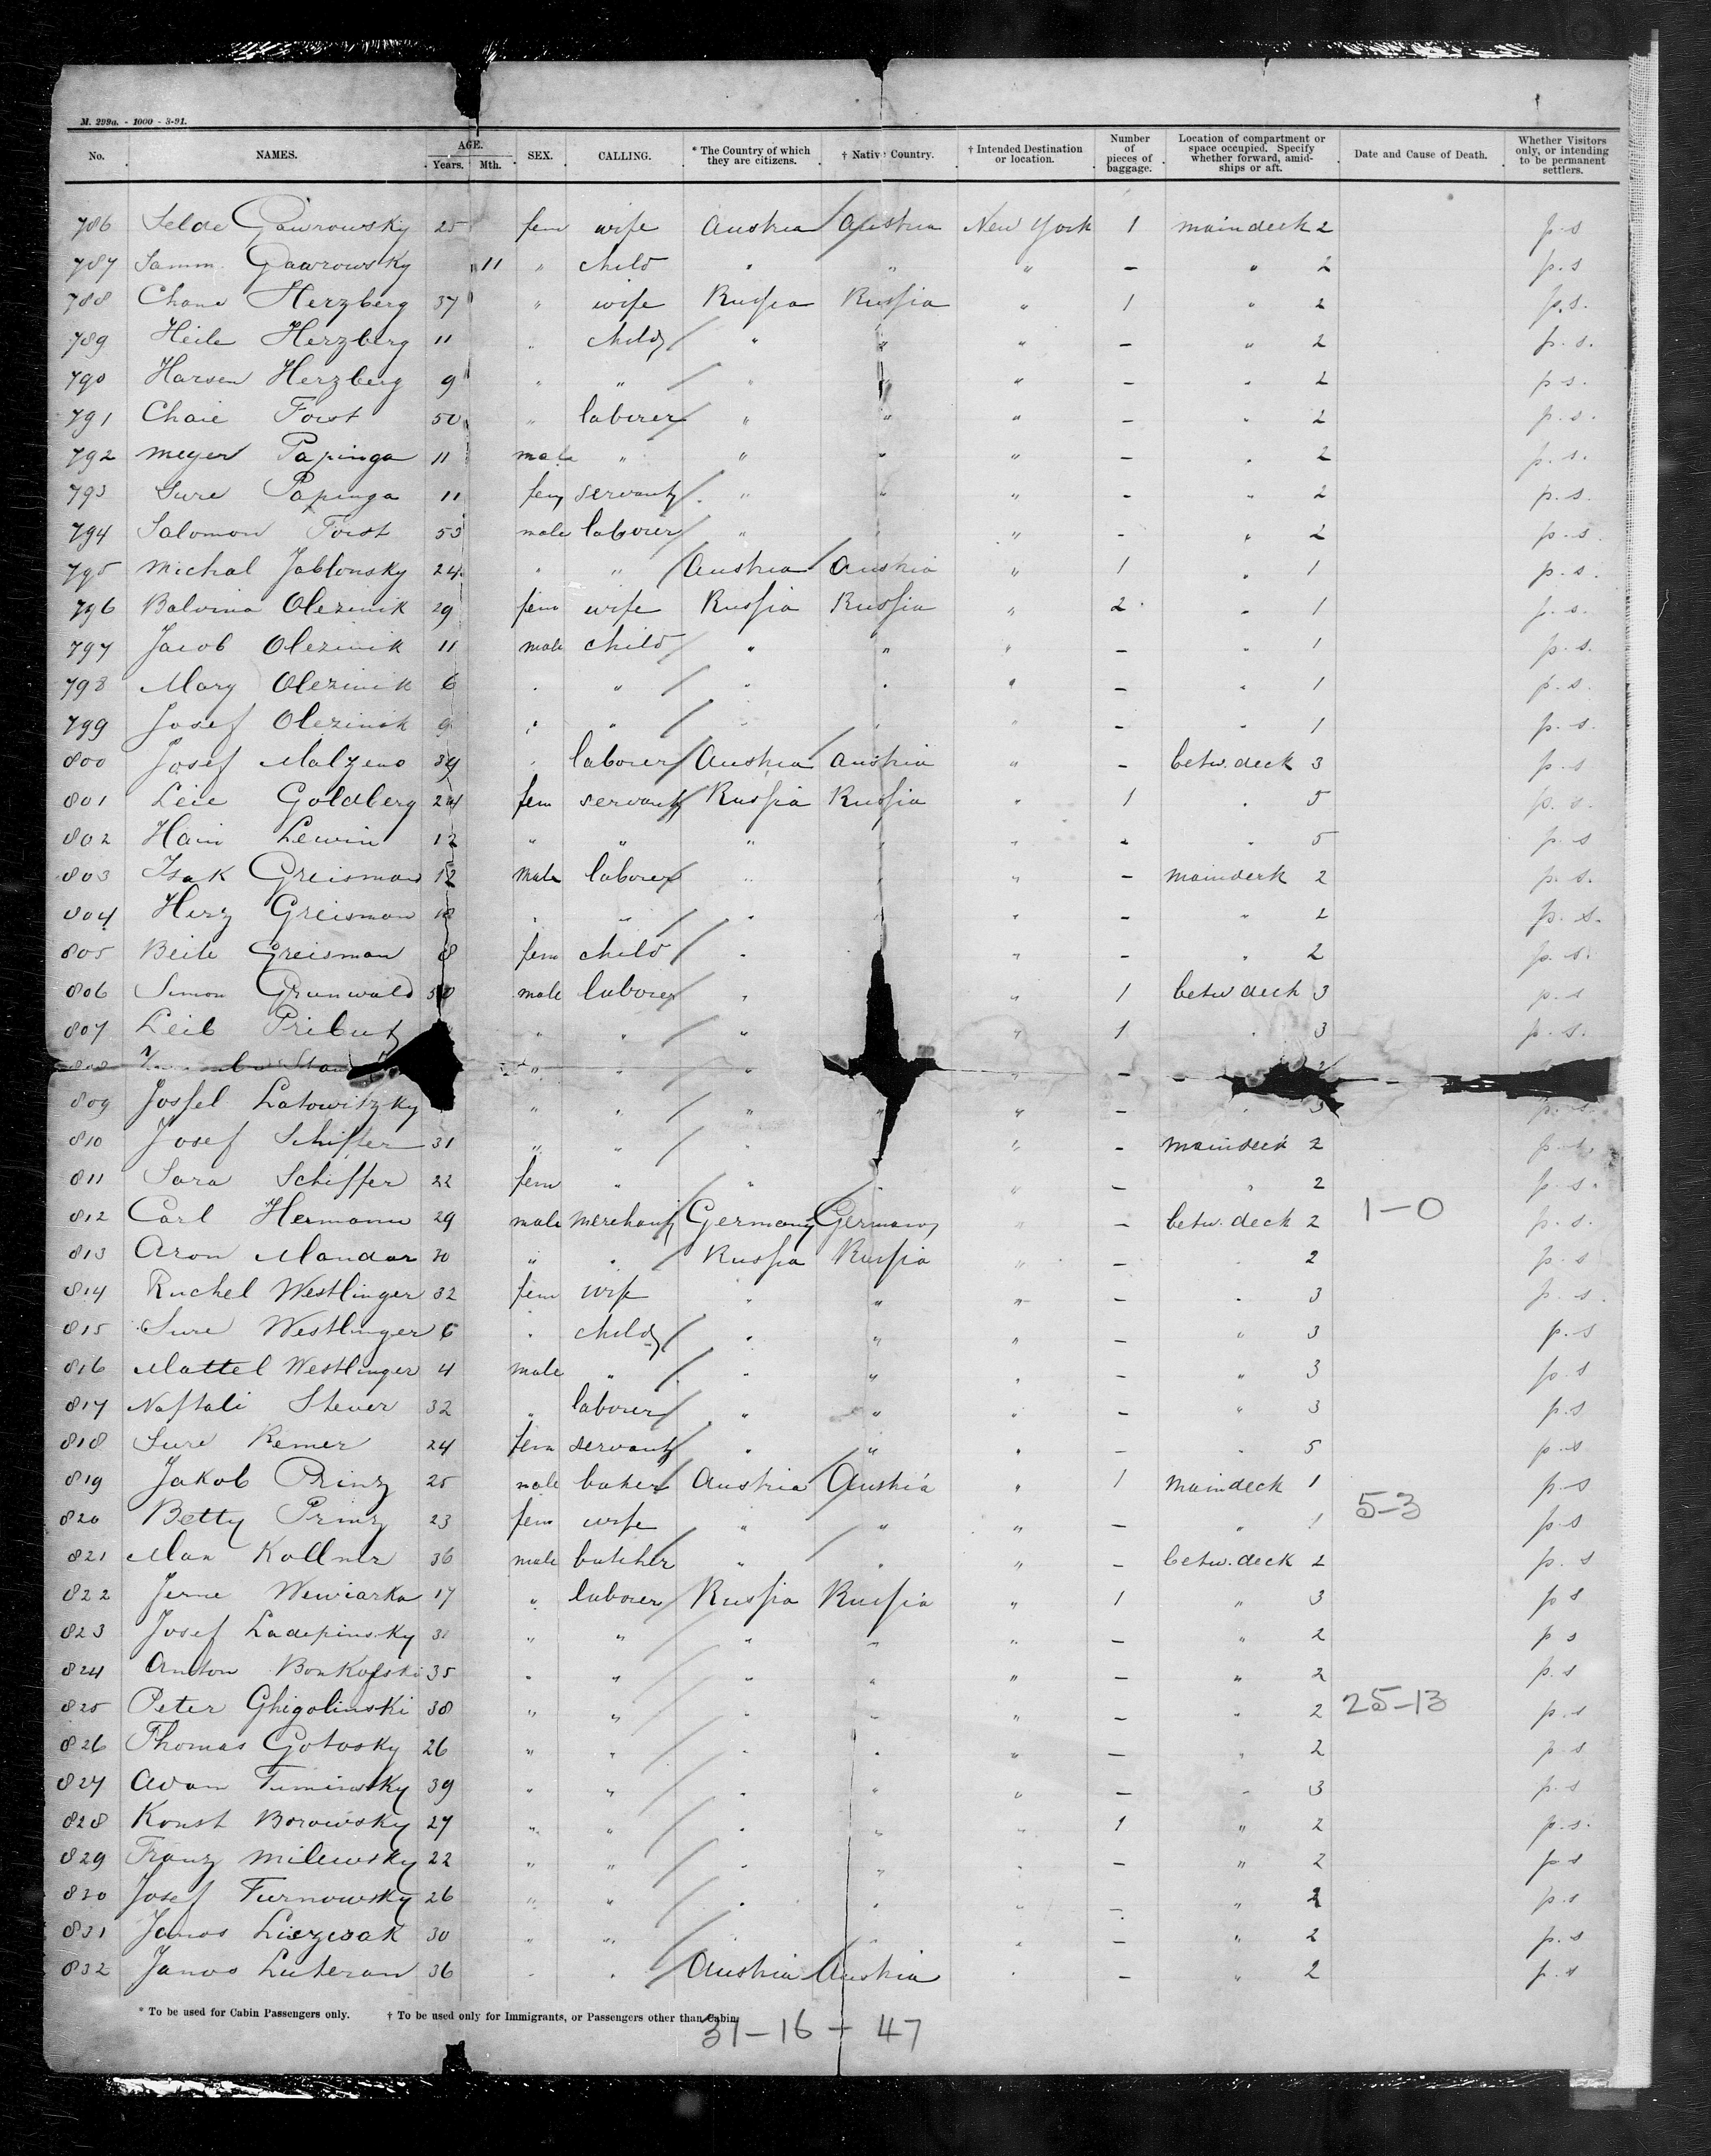 M. 299a. - 1000 - 3-91.
No. NAMES. AGE. Years. Mth. SEX. CALLING. * The Country of which they are citizens. † Native Country. † Intended Destination or location. Number of pieces of baggage. Location of compartment or space occupied. Specify whether forward, amidships or aft. Date and Cause of Death. Whether Visitors only, or intending to be permanent settlers.
786 Selde Gawrowsky 25 fem wife Austria Austria New York 1 maindeck 2 p.s
787 Samm. Gawrowsky 11 " child " " " — " 2 p.s
788 Chane Herzberg 37 " wife Russia Russia " 1 " 2 p.s.
789 Heile Herzberg 11 " child " " " — " 2 p.s.
790 Harsen Herzberg 9 " " " " " — " 2 p.s.
791 Chaie Forst 50 " laborer " " " — " 2 p.s.
792 Meyer Papinga 11 male " " " " — " 2 p.s.
793 Sure Papinga 11 fem servant " " " — " 2 p.s.
794 Salomon Forst 53 male laborer " " " — " 2 p.s.
795 Michal Jablonsky 24 " " Austria Austria " 1 " 1 p.s.
796 Balvina Olezinik 29 fem wife Russia Russia " 2 " 1 p.s.
797 Jacob Olezinik 11 male child " " " — " 1 p.s.
798 Mary Olezinik 6 " " " " " — " 1 p.s.
799 Josef Olezinik 9 " " " " " — " 1 p.s.
800 Josef Malzeno 34 " laborer Austria Austria " — betw. deck 3 p.s
801 Leie Goldberg 24 fem servant Russia Russia " 1 " 5 p.s.
802 Hain Lewin 12 " " " " " — " 5 p.s
803 Isak Greisman 12 male laborer " " " — maindeck 2 p.s.
804 Herz Greisman 18 " " " " " — " 2 p.s.
805 Beile Greisman 8 fem child " " — " 2 p.s.
806 Simon Grunwald male laborer " " 1 betw deck 3 p.s
807 Leib Pribut " " " " 1 " 3 p.s.
808 " " " " — 2
809 Jossel Latowitzky " " " " " — " 3 p.s.
810 Josef Schiffer 31 " " " " — maindeck 2 p.s.
811 Sara Schiffer 22 fem " " " " — " 2 p.s.
812 Carl Hermann 29 male merchant Germany Germany " — betw. deck 2 1-0 p.s.
813 Aron Mandar 30 " " Russia Russia " — " 2 p.s
814 Ruchel Westlinger 32 fem wife " " " — " 3 p.s.
815 Sure Westlinger 6 " child " " " — " 3 p.s
816 Mattel Westlinger 4 male " " " " — " 3 p.s
817 Naftali Stever 32 " laborer " " " — " 3 p.s
818 Sure Remer 24 fem servant " " " — " 5 p.s
819 Jakob Prinz 25 male baker Austria Austria " 1 maindeck 1 p.s
820 Betty Prinz 23 fem wife " " " — " 1 5-3 p.s
821 Max Kollner 36 male butcher " " " — betw. deck 2 p.s
822 Jerne Wewiarka 17 " laborer Russia Russia " 1 " 3 p.s
823 Josef Ladepinsky 31 " " " " " — " 2 p.s
824 Anton Bonkofski 35 " " " " " — " 2 p.s
825 Peter Ghigolinski 38 " " " " " — " 2 25-13 p.s
826 Thomas Gotosky 26 " " " " " — " 2 p.s
827 Adam Tuminsky 39 " " " " " — " 3 p.s
828 Konst Borowsky 27 " " " " " 1 " 2 p.s.
829 Franz Milewsky 22 " " " " " — " 2 p.s
830 Josef Turnowsky 26 " " " " " — " 2 p.s
831 Janos Liezesak 30 " " " " — " 2 p.s
832 Janos Luteran 36 " " Austria Austria " — " 2 p.s
* To be used for Cabin Passengers only. † To be used only for Immigrants, or Passengers other than Cabin.
31-16 + 47